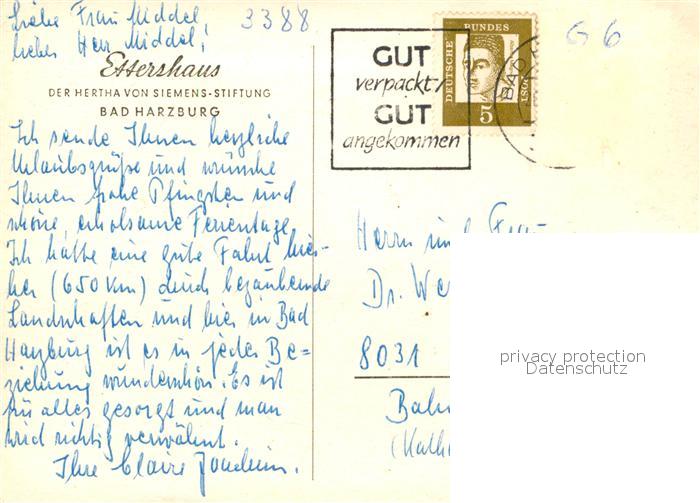 Liebe Frau Middel,
lieber Herr Middel,
3388
G6
Ettershaus
DER HERTHA VON SIEMENS-STIFTUNG
BAD HARZBURG
Ich sende Ihnen herzliche
Urlaubsgrüße und wünsche
Ihnen frohe Pfingsten und
schöne, erholsame Ferientage.
Ich hatte eine gute Fahrt hier-
her (650 km) durch bezaubernde
Landschaften und hier in Bad
Harzburg ist es in jeder Be=
ziehung wunderschön. Es ist
für alles gesorgt und man
wird richtig verwöhnt.
Ihre Claire
GUT
verpackt/
GUT
angekommen
DEUTSCHE BUNDESPOST
5
BAD
Herrn und Frau
Dr. We
8031
privacy protection
Datenschutz